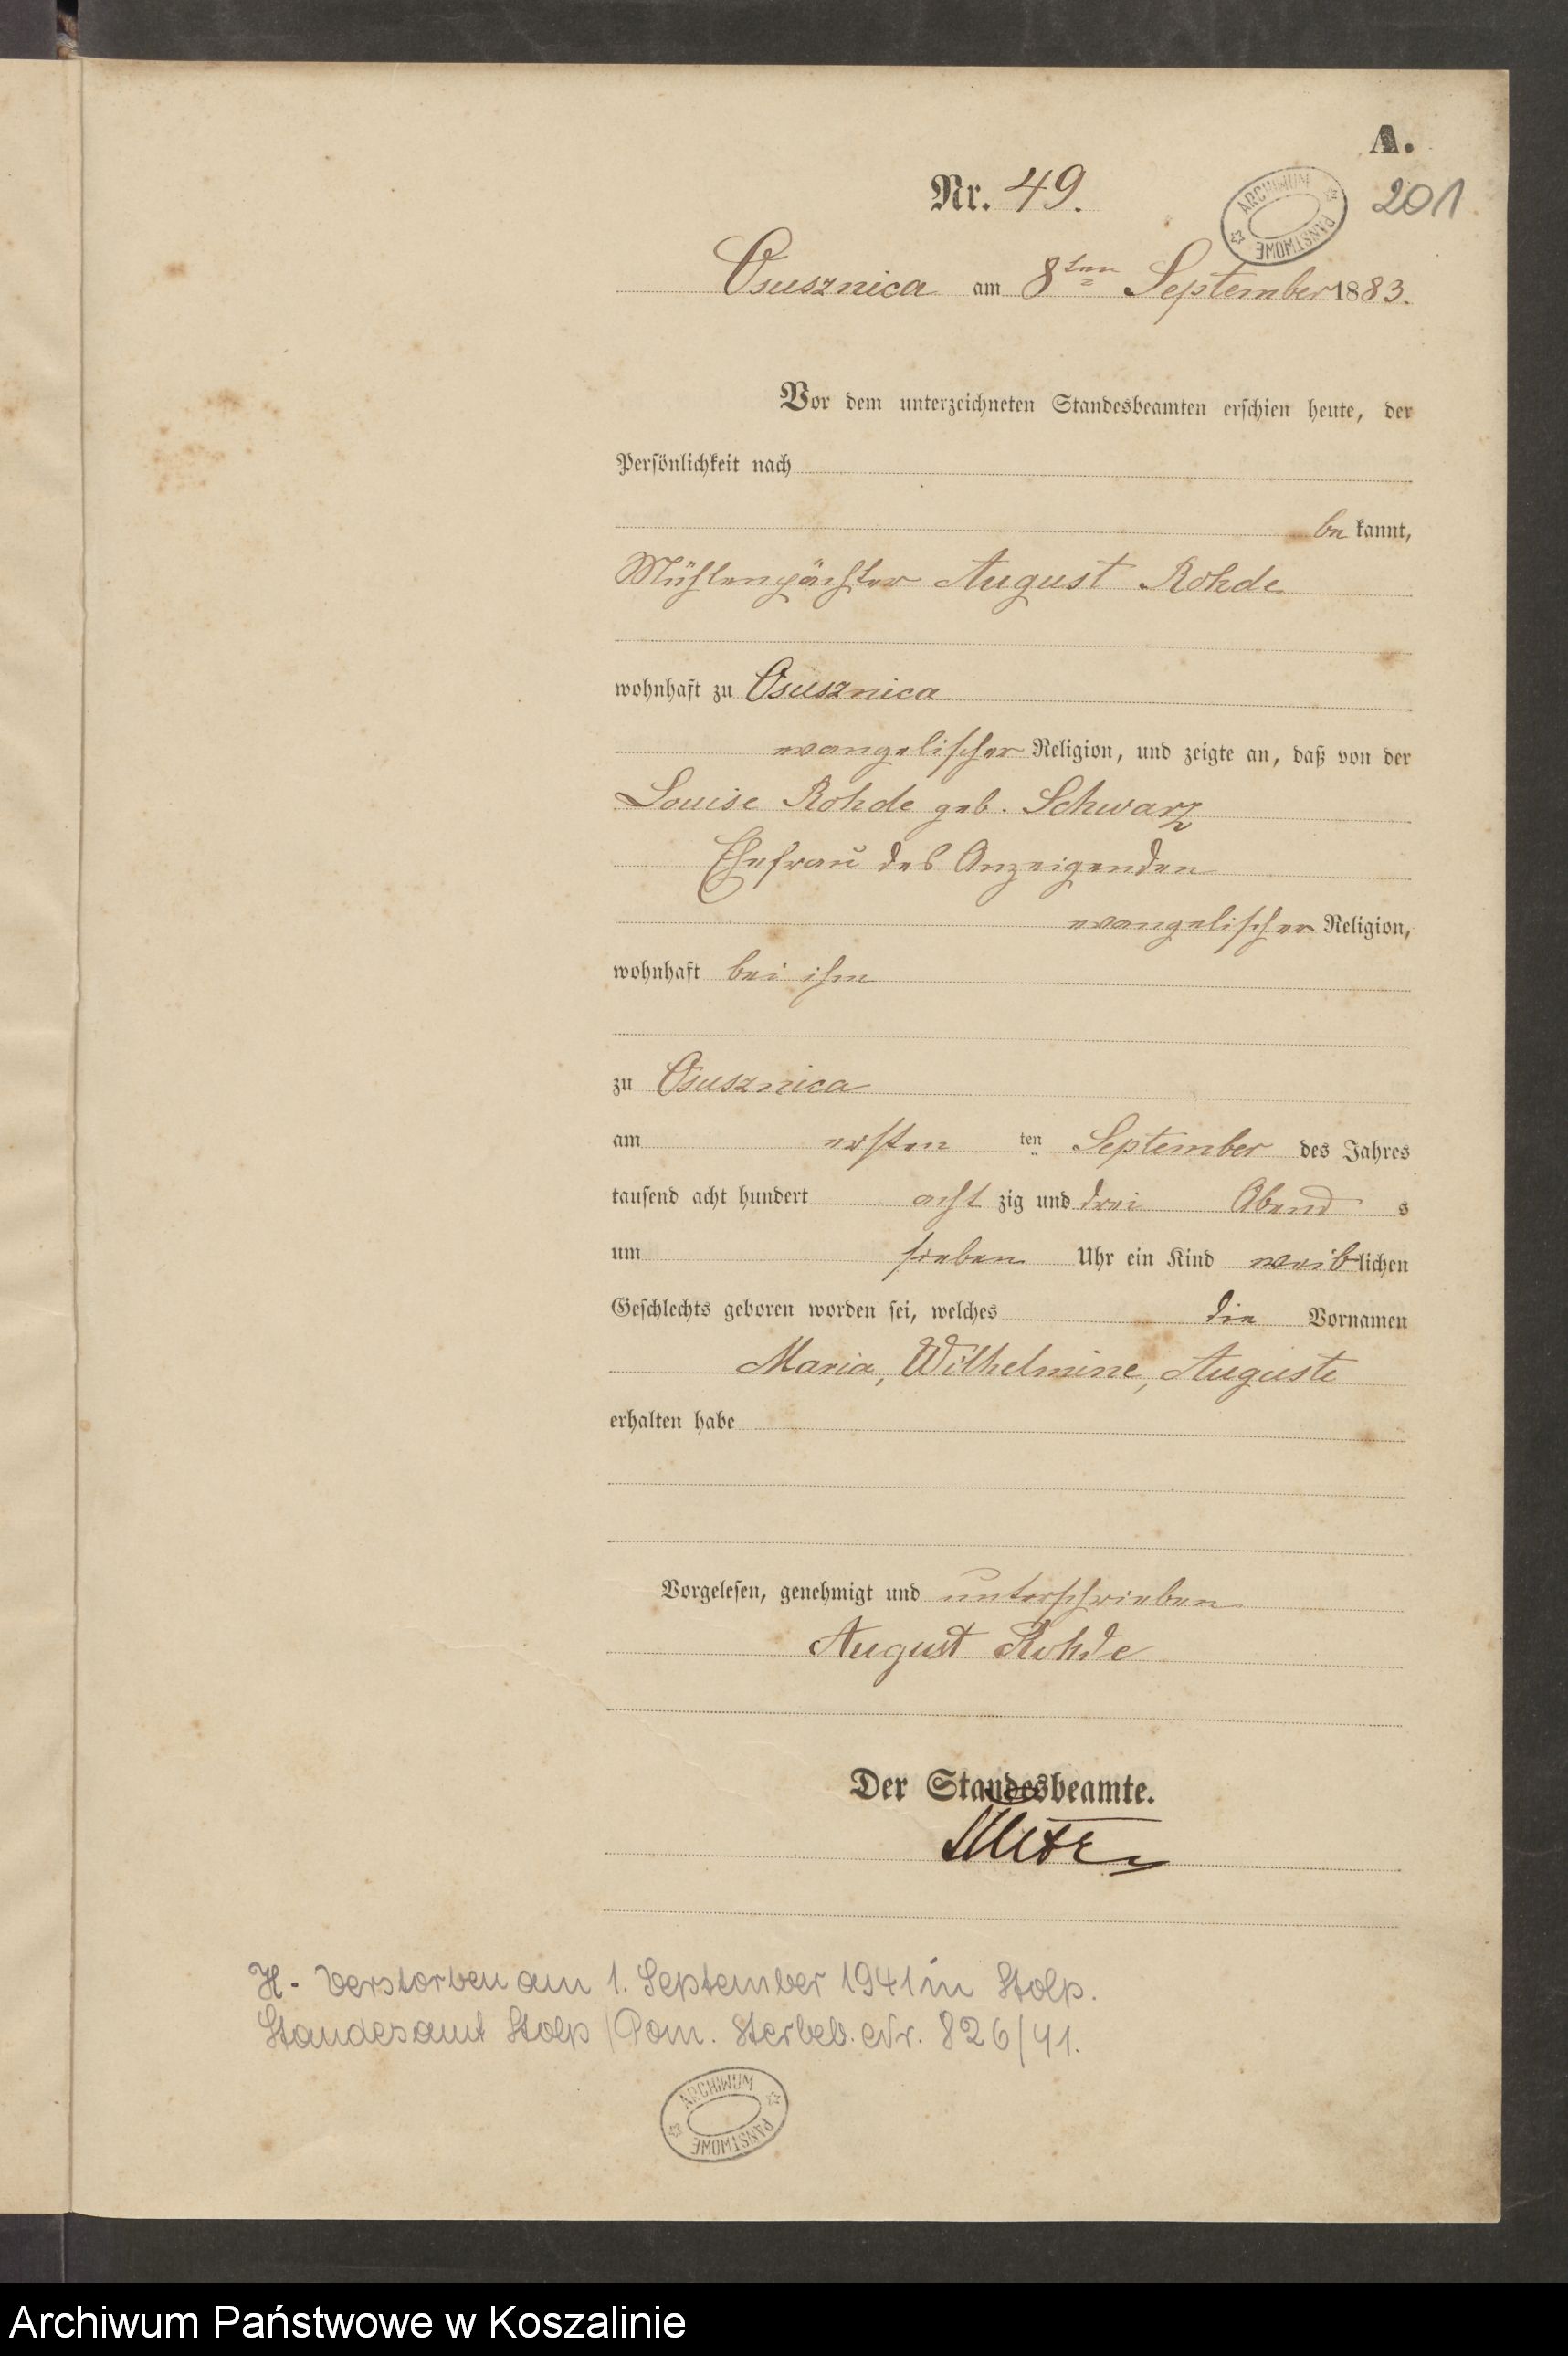 A.
Nr. 49.
ARCHIWUM PAŃSTWOWE
201
Osusznica am 8ten September 1883.
Vor dem unterzeichneten Standesbeamten erschien heute, der
Persönlichkeit nach
be kannt,
Mühlenpächter August Rohde
wohnhaft zu Osusznica
evangelischer Religion, und zeigte an, daß von der
Louise Rohde geb. Schwarz
Ehefrau des Anzeigenden
evangelischer Religion,
wohnhaft bei ihm
zu Osusznica
am ersten ten September des Jahres
tausend acht hundert acht zig und drei Abend s
um sieben Uhr ein Kind weiblichen
Geschlechts geboren worden sei, welches die Vornamen
Maria, Wilhelmine, Auguste
erhalten habe
Vorgelesen, genehmigt und unterschrieben
August Rohde
Der Standesbeamte.
H - Verstorben am 1. September 1941 in Stolp.
Standesamt Stolp/Pom. Sterbeb. Nr. 826/41.
ARCHIWUM PAŃSTWOWE
Archiwum Państwowe w Koszalinie